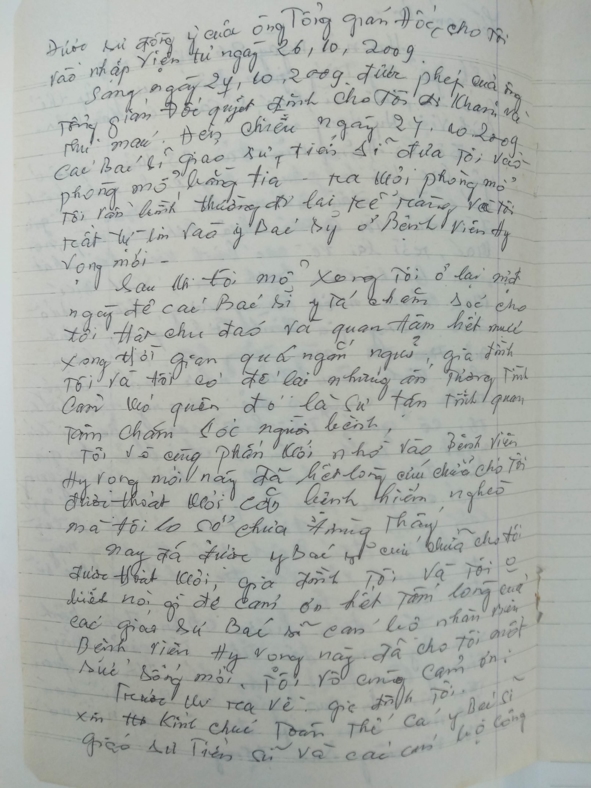 Được sự đồng ý của ông Tổng giám đốc, cho tôi
vào nhập viện từ ngày 26, 10, 2009.
Sang ngày 27, 10, 2009. được phép của ông
Tổng giám Đốc quyết định cho Tôi đi khám và
thử máu. Đến chiều ngày 27. 10 2009
các Bác sĩ giáo sư, tiến sĩ đưa tôi vào
phòng mổ bằng tia - ra khỏi phòng mổ
Tôi vẫn bình thường đi lại và Tôi
rất tự tin vào y Bác sỹ ở Bệnh viện Hy
vọng mới -
Sau khi tôi mổ xong tôi ở lại một
ngày để các Bác sĩ y tá chăm sóc cho
tôi thật chu đáo và quan tâm hết mức
xong thời gian quá ngắn ngủi, gia đình
Tôi và tôi có để lại những ấn tượng tình
cảm khó quên đó là sự tận tình quan
tâm chăm sóc người bệnh,
Tôi vô cùng phấn khởi nhờ vào Bệnh viện
Hy vọng mới này đã hết lòng cứu chữa cho tôi
được thoát khỏi căn bệnh hiểm nghèo
mà tôi lo sợ chưa từng thấy
nay đã được y Bác sỹ cứu chữa cho tôi
được thoát khỏi, gia đình tôi và tôi o
biết nói gì để cám ơn hết tấm lòng của
các giáo sư Bác sĩ cán bộ nhân viên
Bệnh viện Hy vọng này đã cho tôi một
sức sống mới. Tôi vô cùng cảm ơn!
Trước khi ra về. gia đình tôi.
xin kính chúc toàn thể các y Bác sĩ
giáo sư Tiến sĩ và các cán bộ công